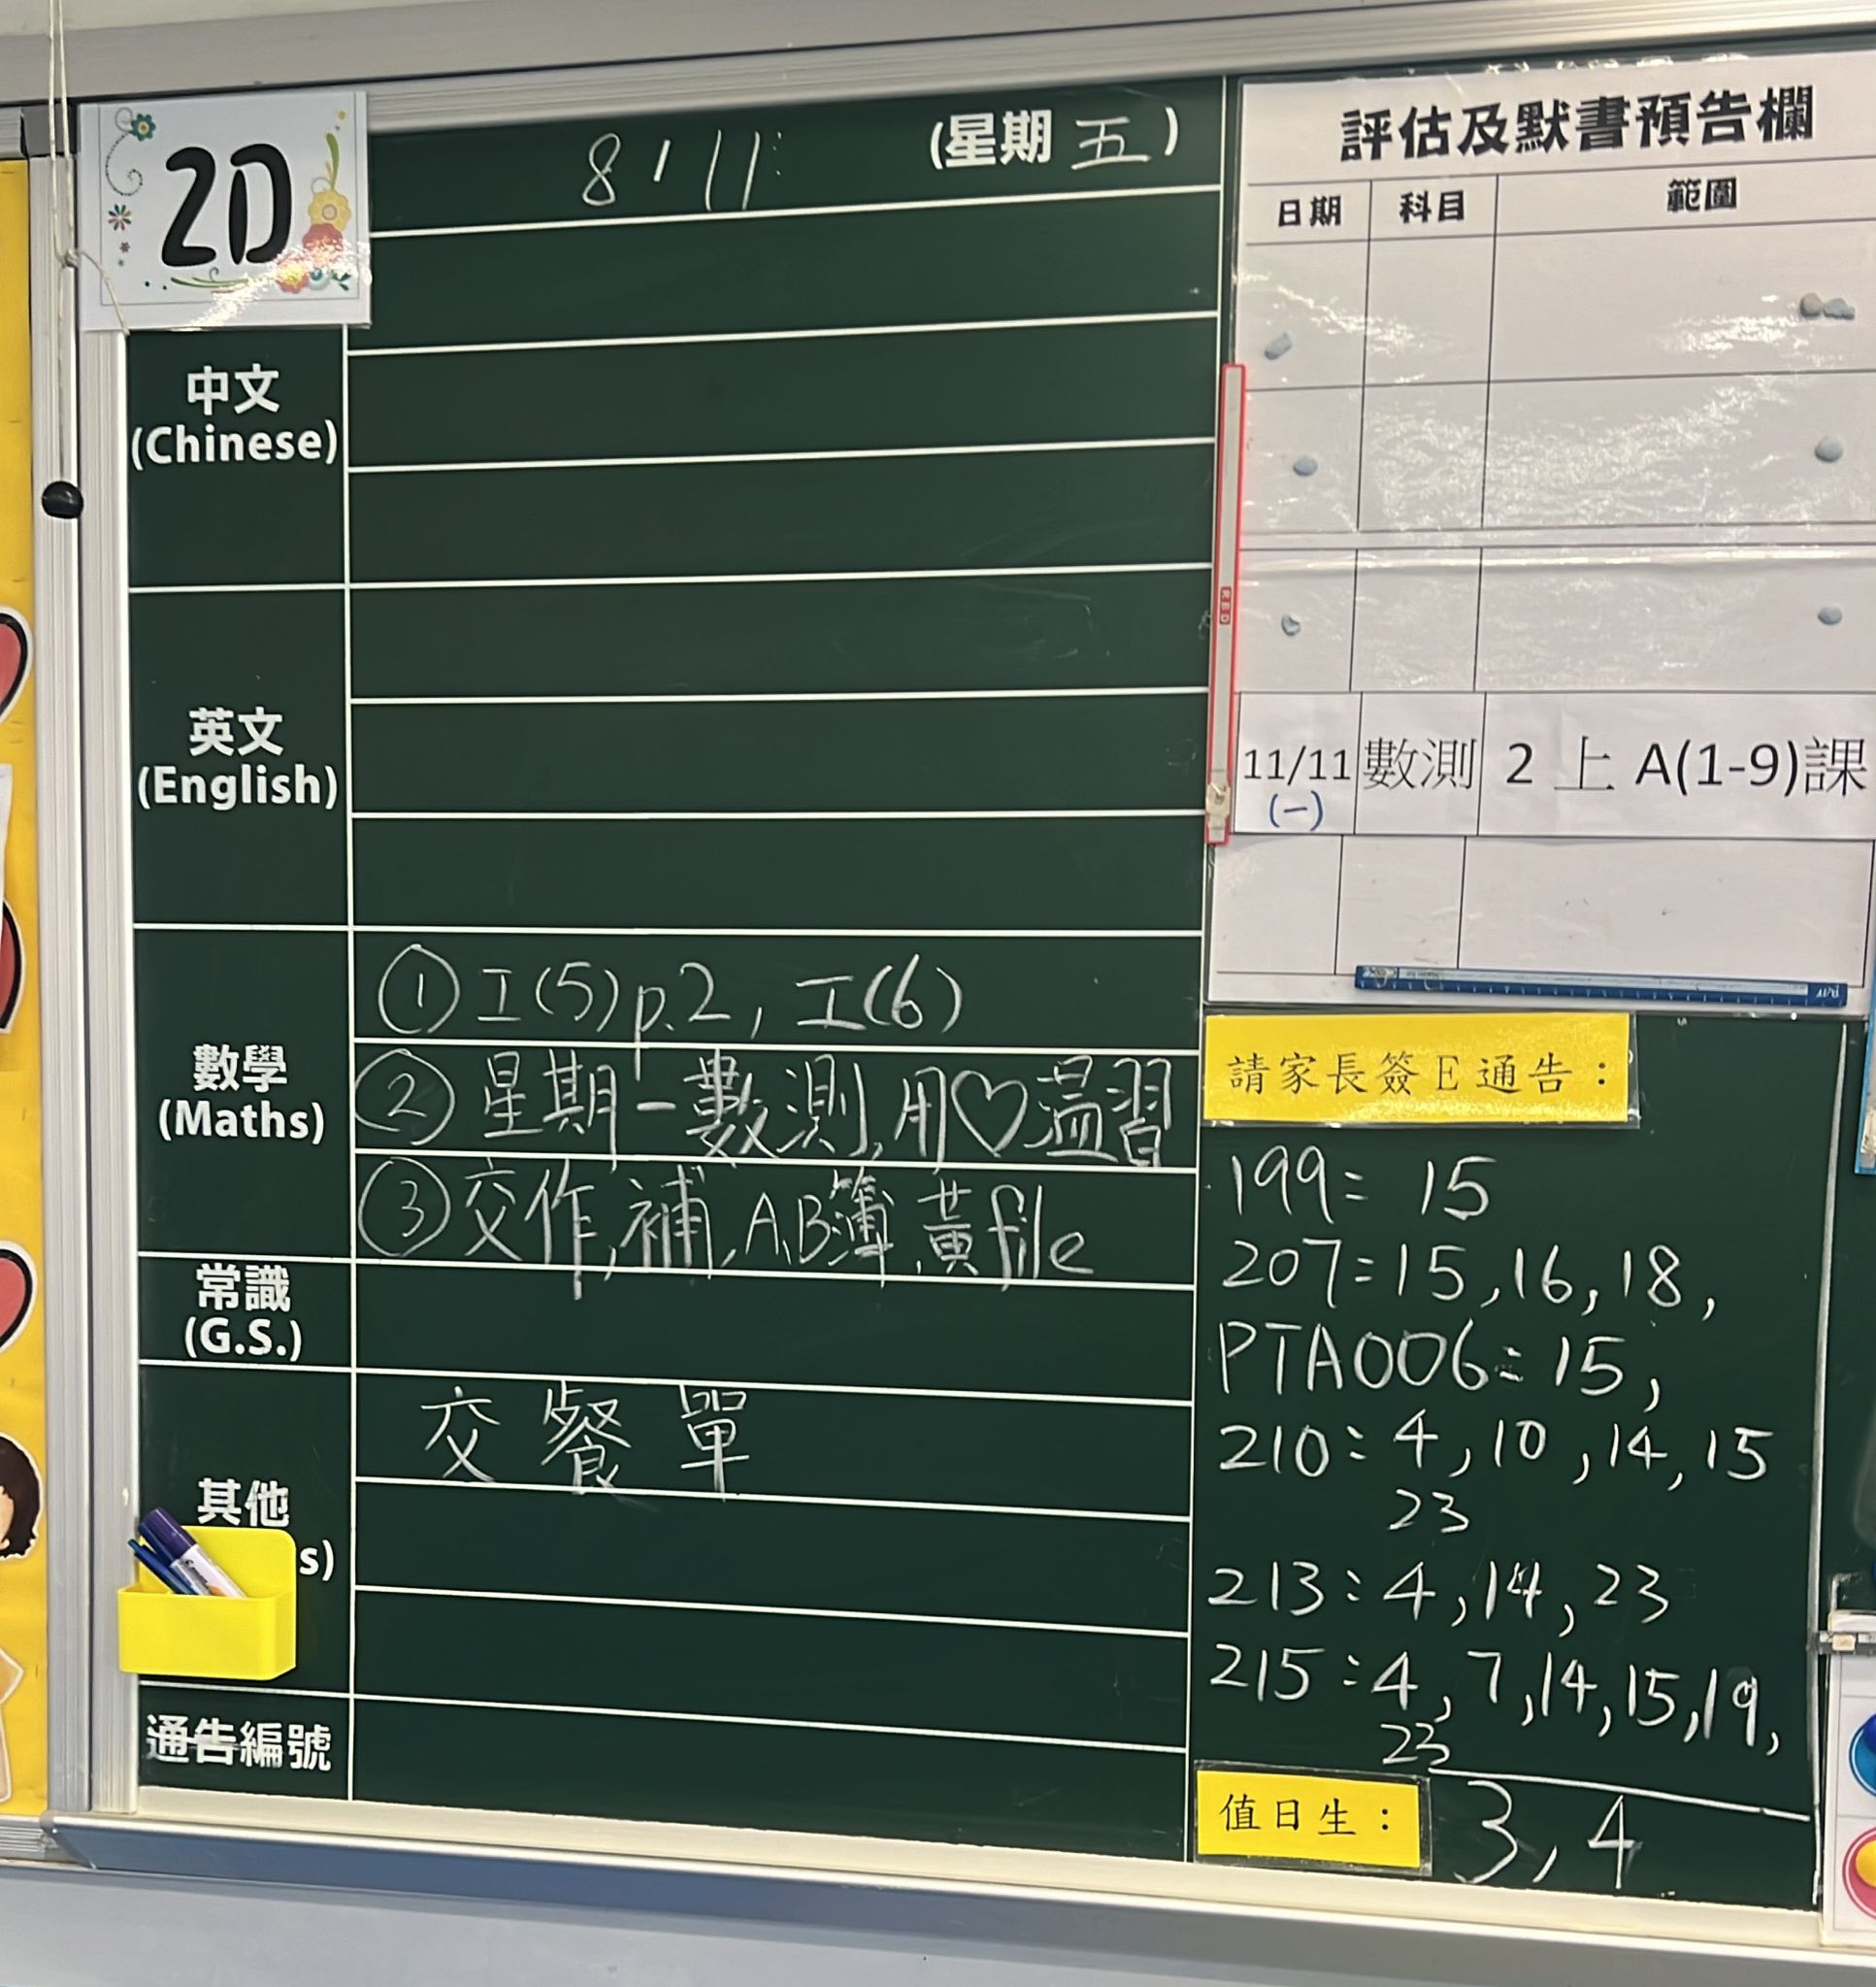 2D
8 / 11
(星期 五)
中文
(Chinese)
英文
(English)
數學
(Maths)
① 工(5)p.2, 工(6)
② 星期一數測,用♡温習
③ 交作,補,A,B簿,黃file
常識
(G.S.)
其他
s)
交餐單
通告編號
評估及默書預告欄
日期 科目 範圍
11/11 數測 2 上 A(1-9)課
(一)
請家長簽E通告：
199: 15
207: 15, 16, 18,
PTA006: 15,
210: 4, 10, 14, 15
23
213: 4, 14, 23
215: 4, 7, 14, 15, 19,
23
值日生： 3, 4
RED